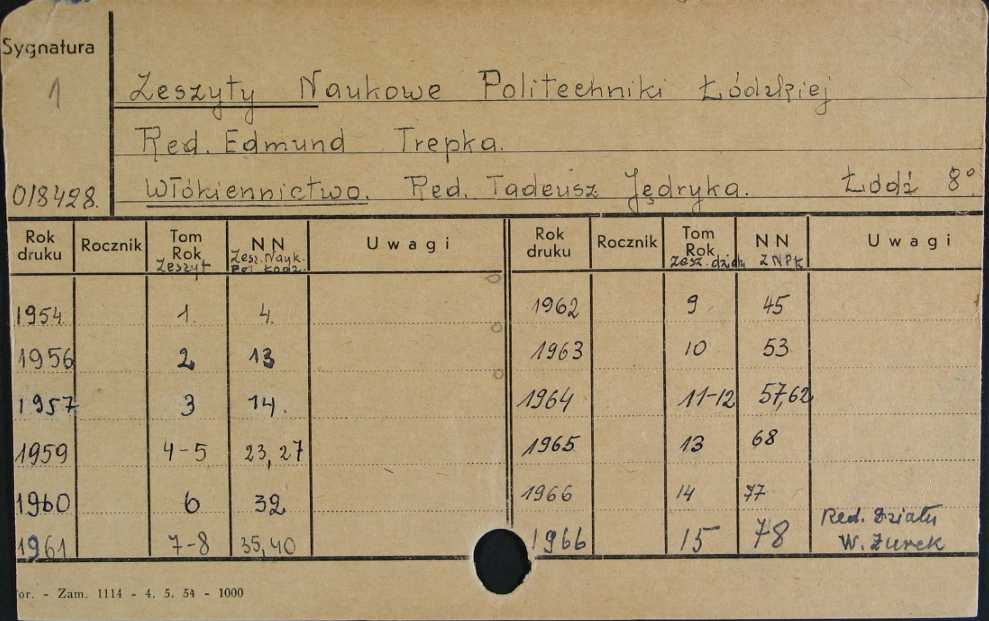 Sygnatura
1
Zeszyty Naukowe Politechniki Łódzkiej
Red. Edmund Trepka.
018428. Włókiennictwo. Red. Tadeusz Jędryka. Łódź 8°
Rok druku Rocznik Tom Rok Zeszyt NN Zesz. Nauk. Pol. Łódz. Uwagi Rok druku Rocznik Tom Rok Zesz. działu NN ZNPŁ Uwagi
1954 1. 4. 1962 9 45
1956 2 13 1963 10 53
1957 3 14. 1964 11-12 57,62
1959 4-5 23,27 1965 13 68
1960 6 32 1966 14 77
1961 7-8 35,40 1966 15 78 Red. Działu W. Żurek
or. - Zam. 1114 - 4. 5. 54 - 1000